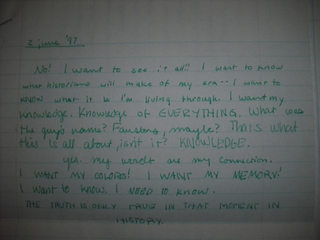 5 june '97
No! I want to see it all!! I want to know
what historians will make of my era... I want to
know what it is I'm living through. I want my
knowledge. Knowledge of EVERYTHING. What was
the guy's name? Faustus, maybe? Thats what
this is all about, isn't it? KNOWLEDGE.
yes. my words are my connection.
I WANT MY COLORS! I WANT MY MEMORY!
I want to know. I NEED TO KNOW.
THE TRUTH IS ONLY IN THAT MOMENT IN
HISTORY.